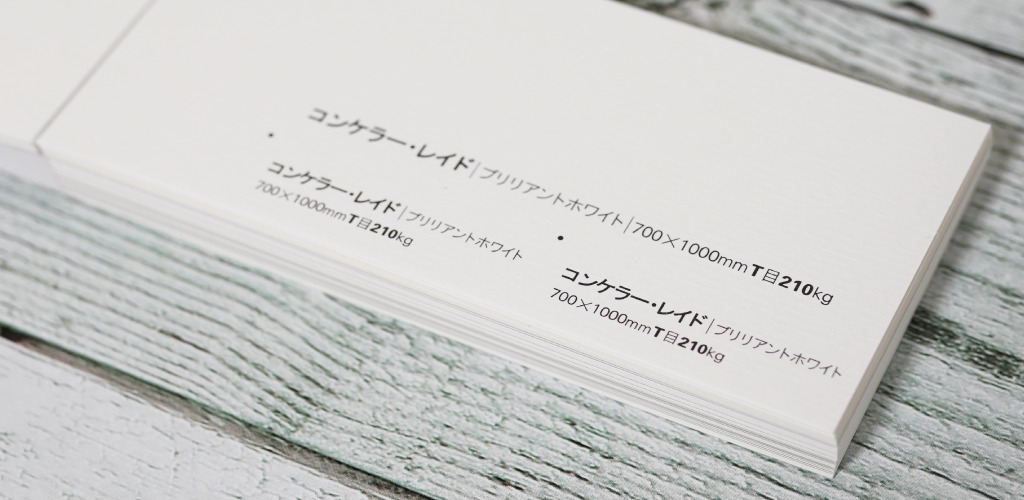 コンケラー・レイド|ブリリアントホワイト|700×1000mm T目210kg
コンケラー・レイド|ブリリアントホワイト
700×1000mm T目210kg
コンケラー・レイド|ブリリアントホワイト
700×1000mm T目210kg